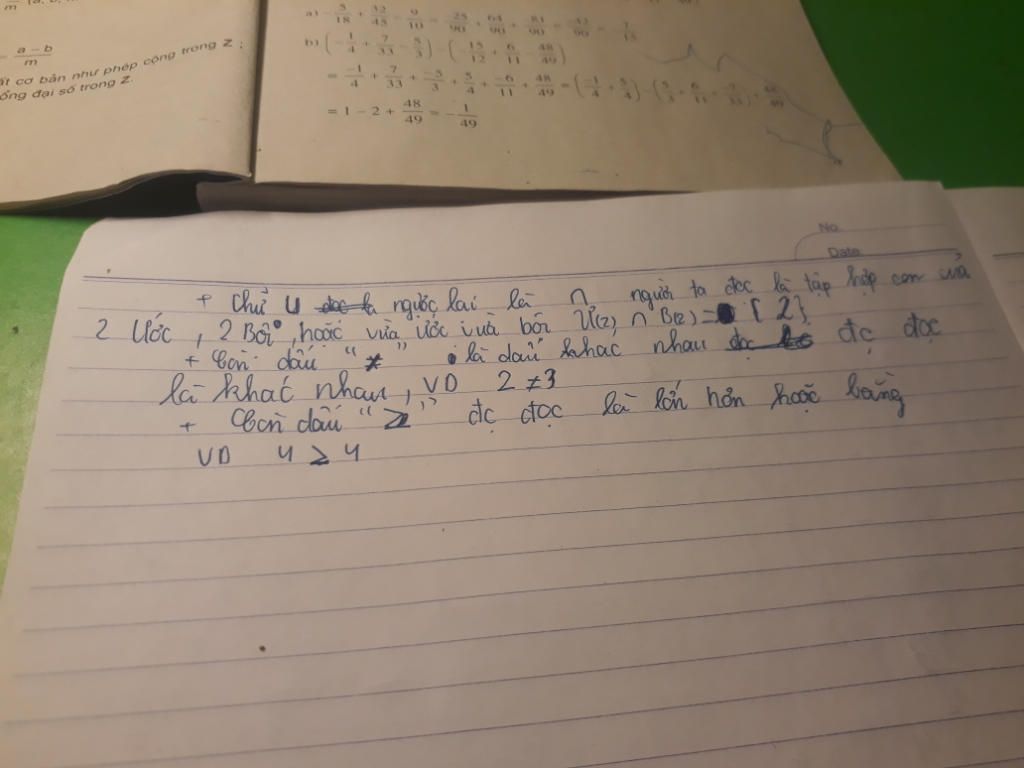 = a – b / m
ất cơ bản như phép cộng trong Z ;
ổng đại số trong Z.
a) -5/18 + 32/45 - 9/10 = -25/90 + 64/90 + -81/90 = -42/90 = -7/15
b) (-1/4 + 7/33 - 5/3) - (-15/12 + 6/11 - 48/49)
= -1/4 + 7/33 + -5/3 + 5/4 + -6/11 + 48/49 = (-1/4 + 5/4) - (5/3 + 6/11 + -7/33) + 48/49
= 1 – 2 + 48/49 = -1/49
No.
Date
+ Chữ U ngược lại là ∩ người ta đọc là tập hợp con của
2 Ước, 2 Bội, hoặc vừa ước vừa bội Ư(2) ∩ B(2) = {2}
+ Còn dấu "≠" là dấu khác nhau đc đọc
là khác nhau, VD 2 ≠ 3
+ Còn dấu "≥" đc đọc là lớn hơn hoặc bằng
VD 4 ≥ 4